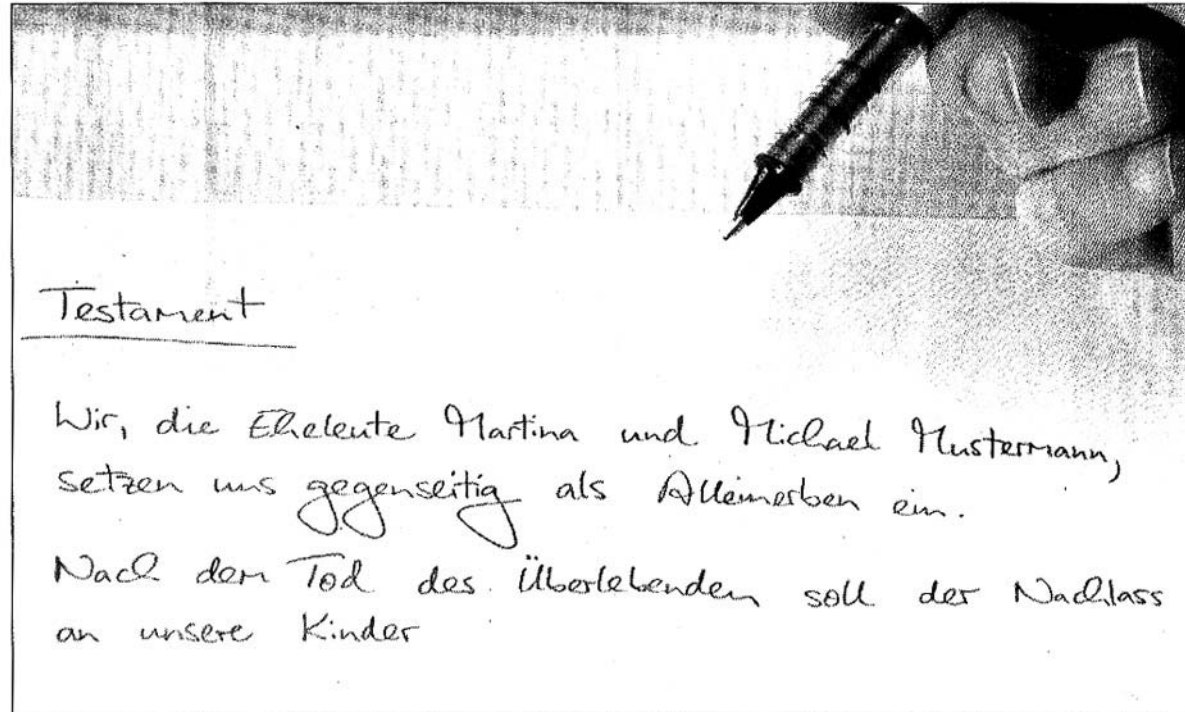 Testament
Wir, die Eheleute Martina und Michael Mustermann,
setzen uns gegenseitig als Alleinerben ein.
Nach dem Tod des Überlebenden soll der Nachlass
an unsere Kinder